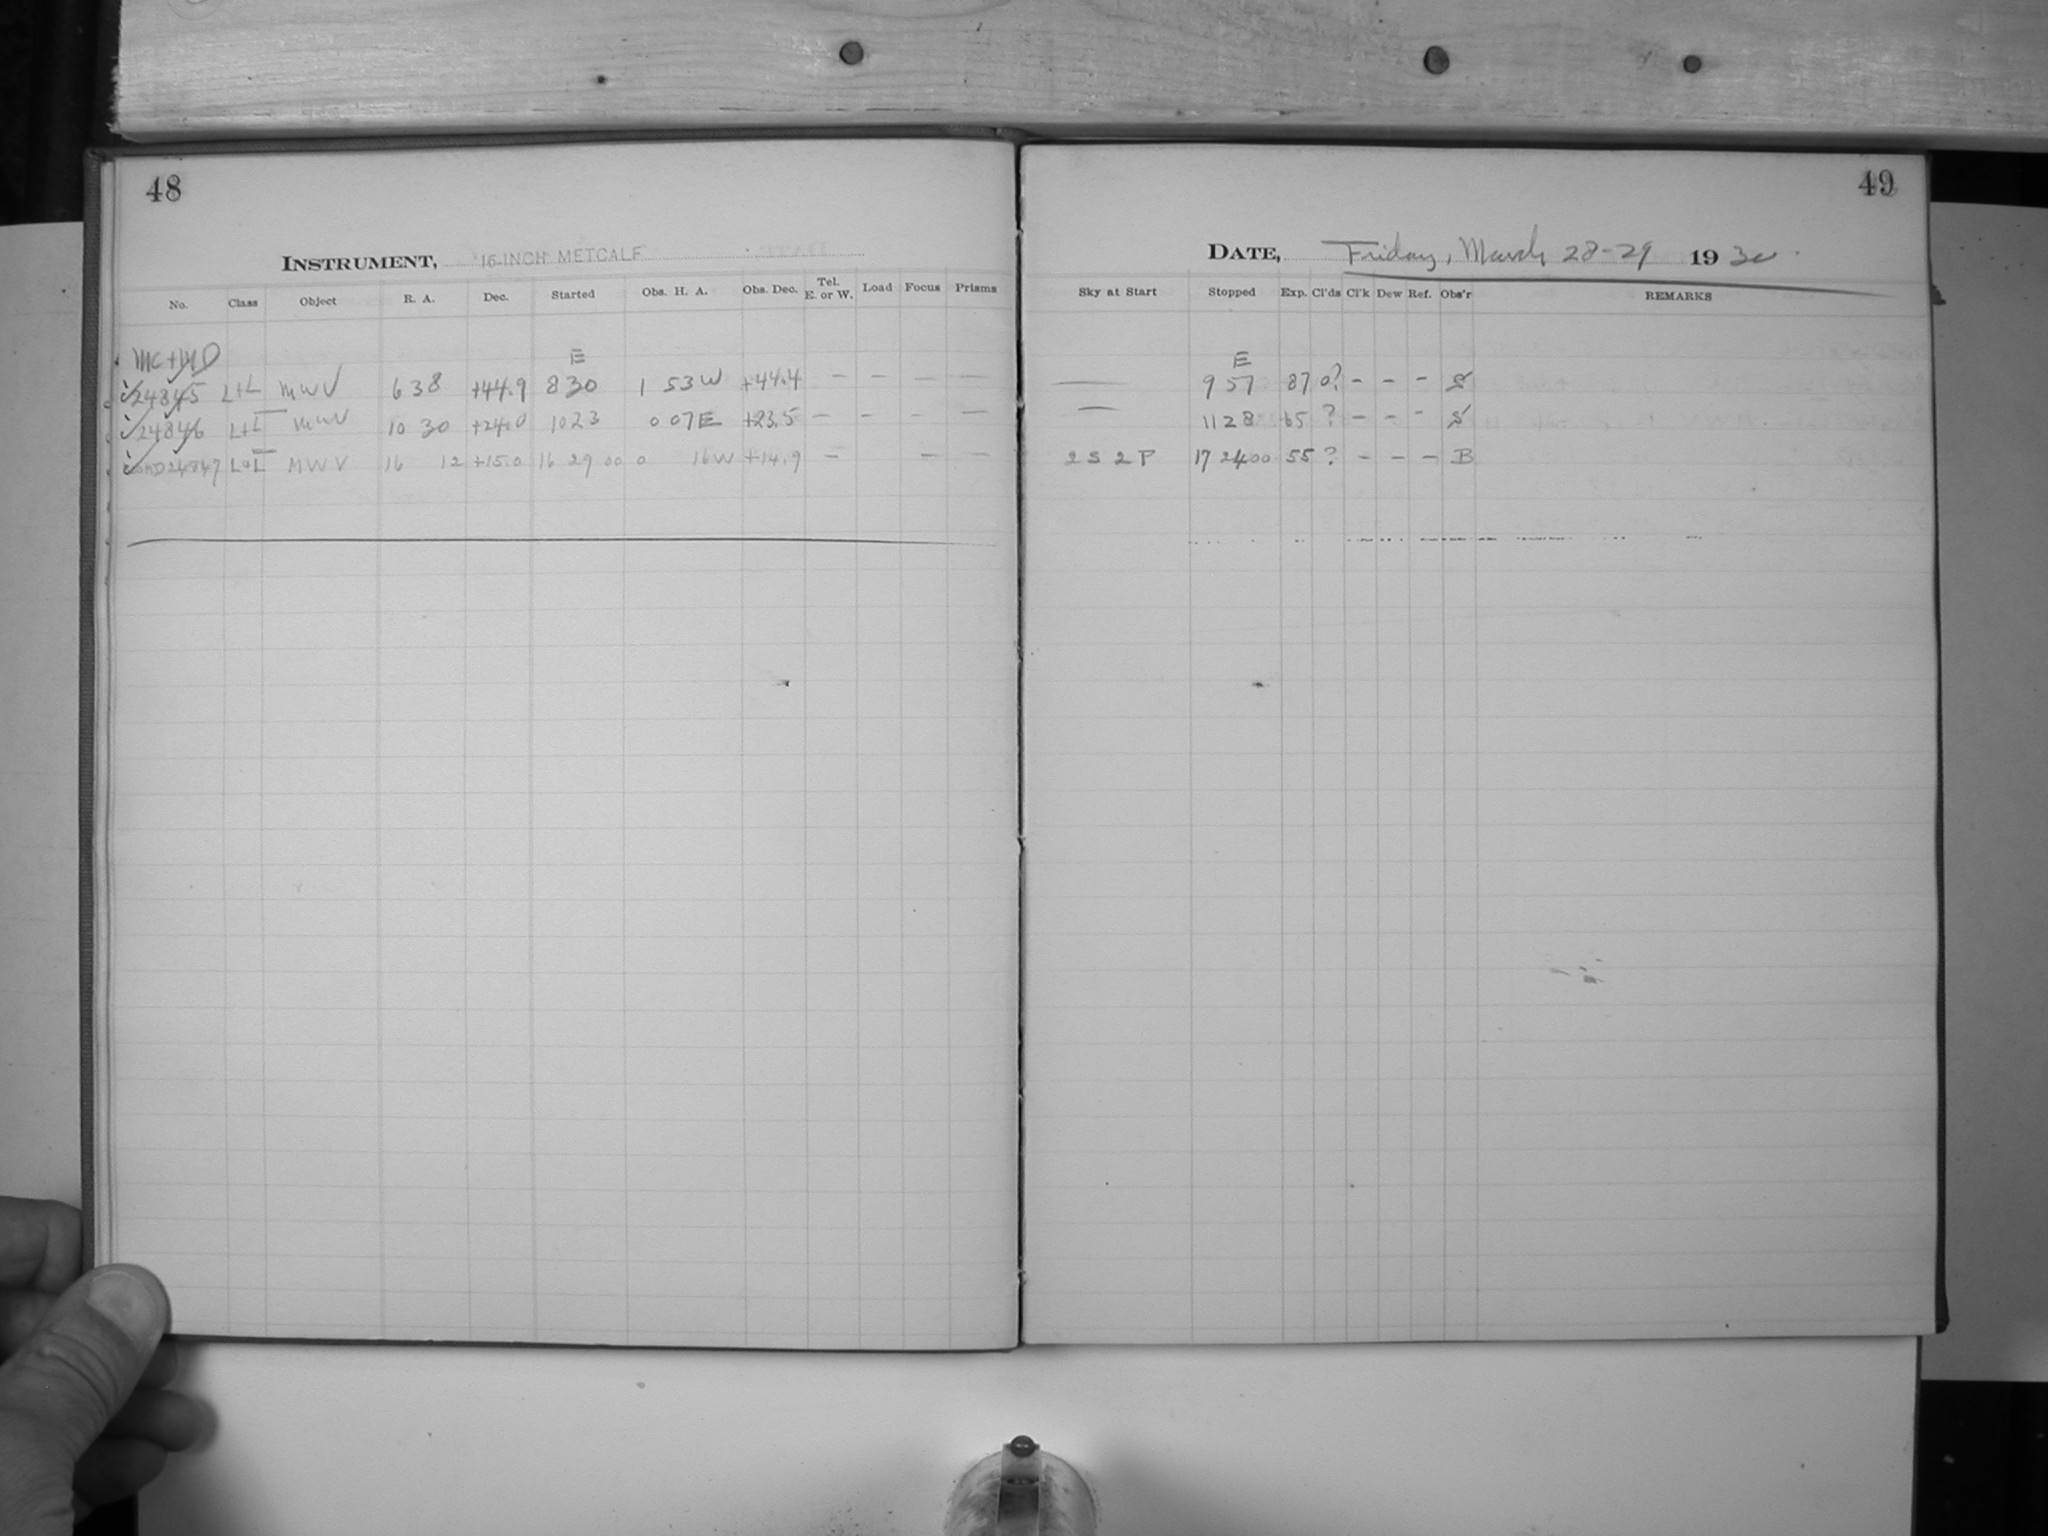 48
INSTRUMENT, 16-INCH METCALF
No. Class Object R. A. Dec. Started Obs. H. A. Obs. Dec. Tel. E. or W. Load Focus Prisms
MC+MD E
24845 L+L MWV 6 38 +44.9 8 30 1 53W +44.4 — — — —
24846 L+L MWV 10 30 +24.0 10 23 0 07E +23.5 — — — —
24847 MWV 16 12 +15.0 16 29 00 0 16W +14.9 — — —
49
DATE, Friday, March 28-29 1930.
Sky at Start Stopped Exp. Cl'ds Cl'k Dew Ref. Obs'r REMARKS
E
— 9 57 87 0? - - -
— 11 28 65 ? - - -
2 S 2 P 17 24 00 55 ? - - - B